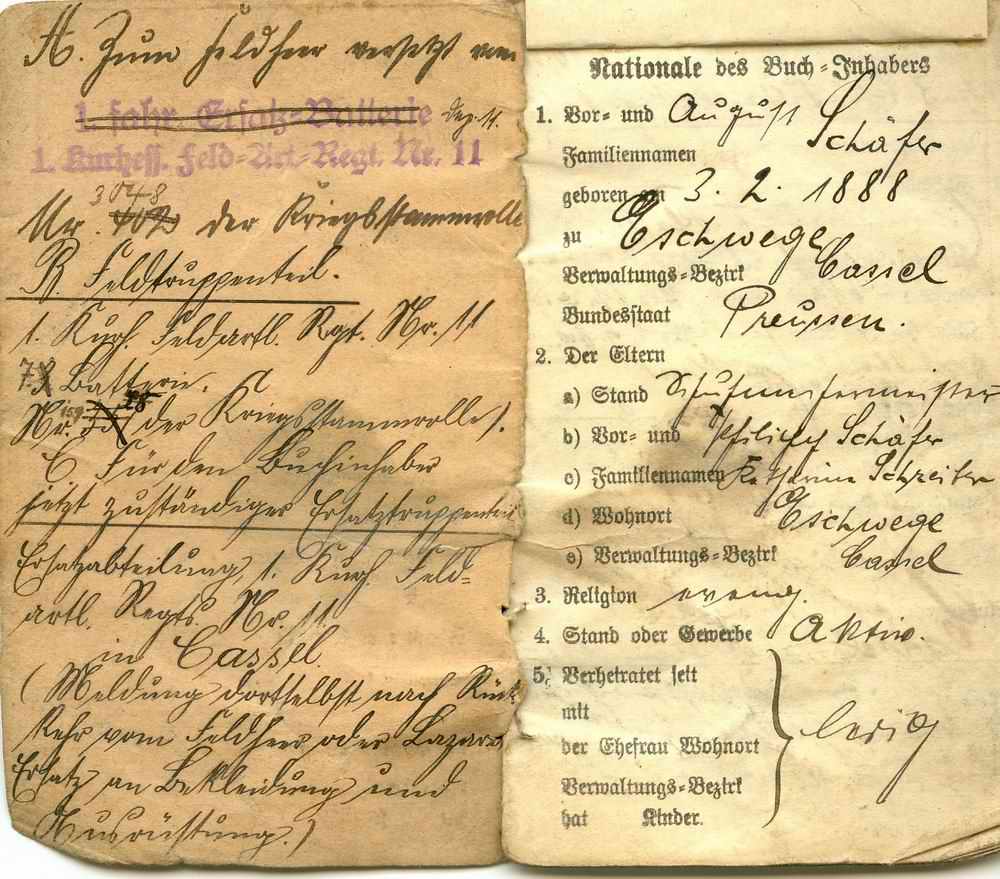 A. Zum Feldheer versetzt vom
1. fahr. Ersatz-Batterie Dez. 14.
1. Kurhess. Feld-Art-Regt. Nr. 11
3048
Nr. der Kriegsstammrolle
B. Feldtruppenteil.
1. Kurh. Feldartl. Rgt. Nr. 11
7. Batterie.
Nr. 159 28 (der Kriegsstammrolle).
C. Für den Buchinhaber
jetzt zuständiger Ersatztruppenteil
Ersatzabteilung 1. Kurh. Feld-
artl. Regts. Nr. 11.
in Cassel.
(Meldung dortselbst nach Rück
kehr vom Feldheer oder Lazarett
Ersatz an Bekleidung und
Ausrüstung.)
Nationale des Buch-Inhabers
1. Vor- und August Schäfer
Familiennamen
geboren am 3. 2. 1888
zu Eschwege
Verwaltungs-Bezirk Cassel
Bundesstaat Preussen.
2. Der Eltern
a) Stand
b) Vor- und Philipp Schäfer
c) Familiennamen Katharina Schreiber
d) Wohnort Eschwege
e) Verwaltungs-Bezirk Cassel
3. Religion evang.
4. Stand oder Gewerbe Aktiv.
5. Verheiratet seit
mit
der Ehefrau Wohnort ledig
Verwaltungs-Bezirk
hat Kinder.